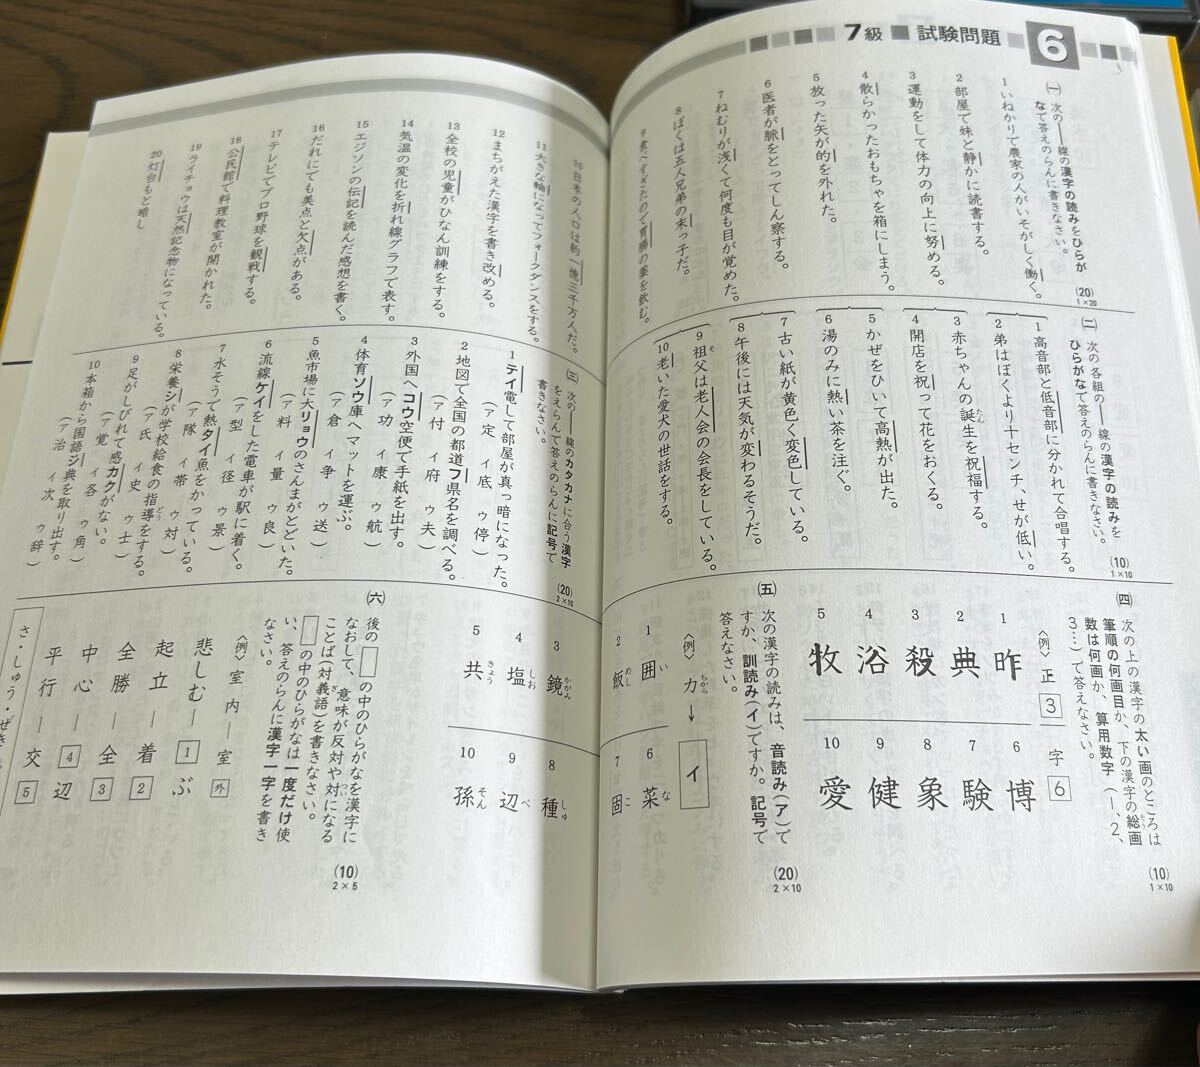 7級 試験問題 6
(一) 次の――線の漢字の読みをひらが
なで答えのらんに書きなさい。
(20)
1×20
1 いねかりで農家の人がいそがしく働く。
2 部屋で妹と静かに読書する。
3 運動をして体力の向上に努める。
4 散らかったおもちゃを箱にしまう。
5 放った矢が的を外れた。
6 医者が脈をとってしん察する。
7 ねむりが浅くて何度も目が覚めた。
8 ぼくは五人兄弟の末っ子だ。
9 食べすぎたので胃腸の薬を飲む。
10 日本の人口は約一億三千万人だ。
11 大きな輪になってフォークダンスをする。
12 まちがえた漢字を書き改める。
13 全校の児童がひなん訓練をする。
14 気温の変化を折れ線グラフで表す。
15 エジソンの伝記を読んだ感想を書く。
16 だれにでも美点と欠点がある。
17 テレビでプロ野球を観戦する。
18 公民館で料理教室が開かれた。
19 ライチョウは天然記念物になっている。
20 灯台もと暗し
(二) 次の各組の――線の漢字の読みを
ひらがなで答えのらんに書きなさい。
(10)
1×10
1 高音部と低音部に分かれて合唱する。
2 弟はぼくより十センチ、せが低い。
3 赤ちゃんの誕生を祝福する。
たん
4 開店を祝って花をおくる。
5 かぜをひいて高熱が出た。
6 湯のみに熱い茶を注ぐ。
7 古い紙が黄色く変色している。
8 午後には天気が変わるそうだ。
9 祖父は老人会の会長をしている。
そ
10 老いた愛犬の世話をする。
(三) 次の――線のカタカナに合う漢字
をえらんで答えのらんに記号で
書きなさい。
(20)
2×10
1 テイ電して部屋が真っ暗になった。
(ア 定 イ 底 ウ 停)
2 地図で全国の都道フ県名を調べる。
(ア 付 イ 府 ウ 夫)
3 外国へコウ空便で手紙を出す。
(ア 功 イ 康 ウ 航)
4 体育ソウ庫へマットを運ぶ。
(ア 倉 イ 争 ウ 送)
5 魚市場に大リョウのさんまがとどいた。
(ア 料 イ 量 ウ 良)
6 流線ケイをした電車が駅に着く。
(ア 型 イ 径 ウ 景)
7 水そうで熱タイ魚をかっている。
(ア 隊 イ 帯 ウ 対)
8 栄養シが学校給食の指導をする。
どう
(ア 氏 イ 史 ウ 士)
9 足がしびれて感カクがない。
(ア 覚 イ 各 ウ 角)
10 本箱から国語ジ典を取り出す。
(ア 治 イ 次 ウ 辞)
(四) 次の上の漢字の太い画のところは
筆順の何画目か、下の漢字の総画
そう
数は何画か、算用数字(1、2、
3…)で答えなさい。
(10)
1×10
〈例〉 正 3 字 6
1 昨
2 典
3 殺
4 浴
5 牧
6 博
7 験
8 象
9 健
10 愛
(五) 次の漢字の読みは、音読み(ア)で
すか、訓読み(イ)ですか。記号で
答えなさい。
(20)
2×10
〈例〉 力 ちから → イ
1 囲 い
2 飯 めし
3 鏡 かがみ
4 塩 しお
5 共 きょう
6 菜 な
7 固 こ
8 種 しゅ
9 辺 べ
10 孫 そん
(六) 後の□の中のひらがなを漢字に
なおして、意味が反対や対になる
ことば(対義語)を書きなさい。
ぎ
□の中のひらがなは一度だけ使
い、答えのらんに漢字一字を書き
なさい。
(10)
2×5
〈例〉 室内―室外
悲しむ―1ぶ
起立―着2
全勝―全3
中心―4辺
平行―交5
さ・しゅう・ぜき